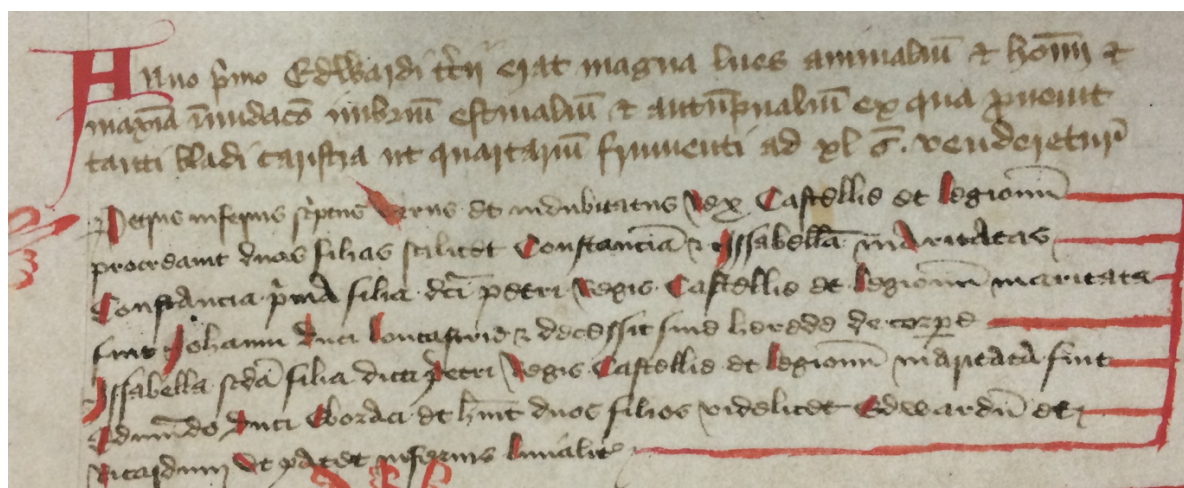 Anno p̄mo Edwardi t̄cii erat magna lues animaliū & hoīm &
maxīa īnūdacō imbriū estiualiū & autūpnaliū ex qua p̱uenit
tanti bladi caristia ut quartariū frumenti ad xl s̄. venderetur
Petrus inferius sc̄ptus verus et indubitatus Rex Castellie et Legionū
procreauit duas filias scilicet Constanciā & Issabellā maritatas
Constancia p̄ma filia dc̄i petri Regis Castellie et Legionū maritata
fuit Johanni duci loncastrie & decessit sine herede de corpe
Issabella sc̄da filia dicti Petri Regis Castellie et Legionū maritata fuit
Edmūdo duci Eboraci et hūit duos filios videlicet Edwardū et
Ricardum ut patet inferius linialit̄